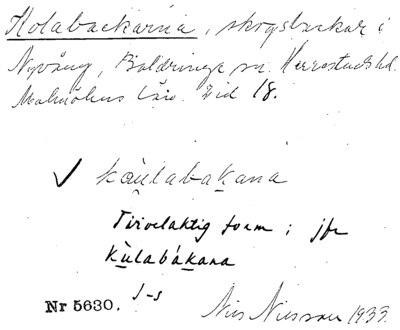 Holabackarna, skogsbackar i
Nyvång, Baldringe sn. Herrestads hd.
Malmöhus län. Eid 18.
✓ kạu̠labak̠ana
Tvivelaktig form; jfr
Ku̠labák̠ana
J-s
Nr 5630.
Nils Nilsson 1933.